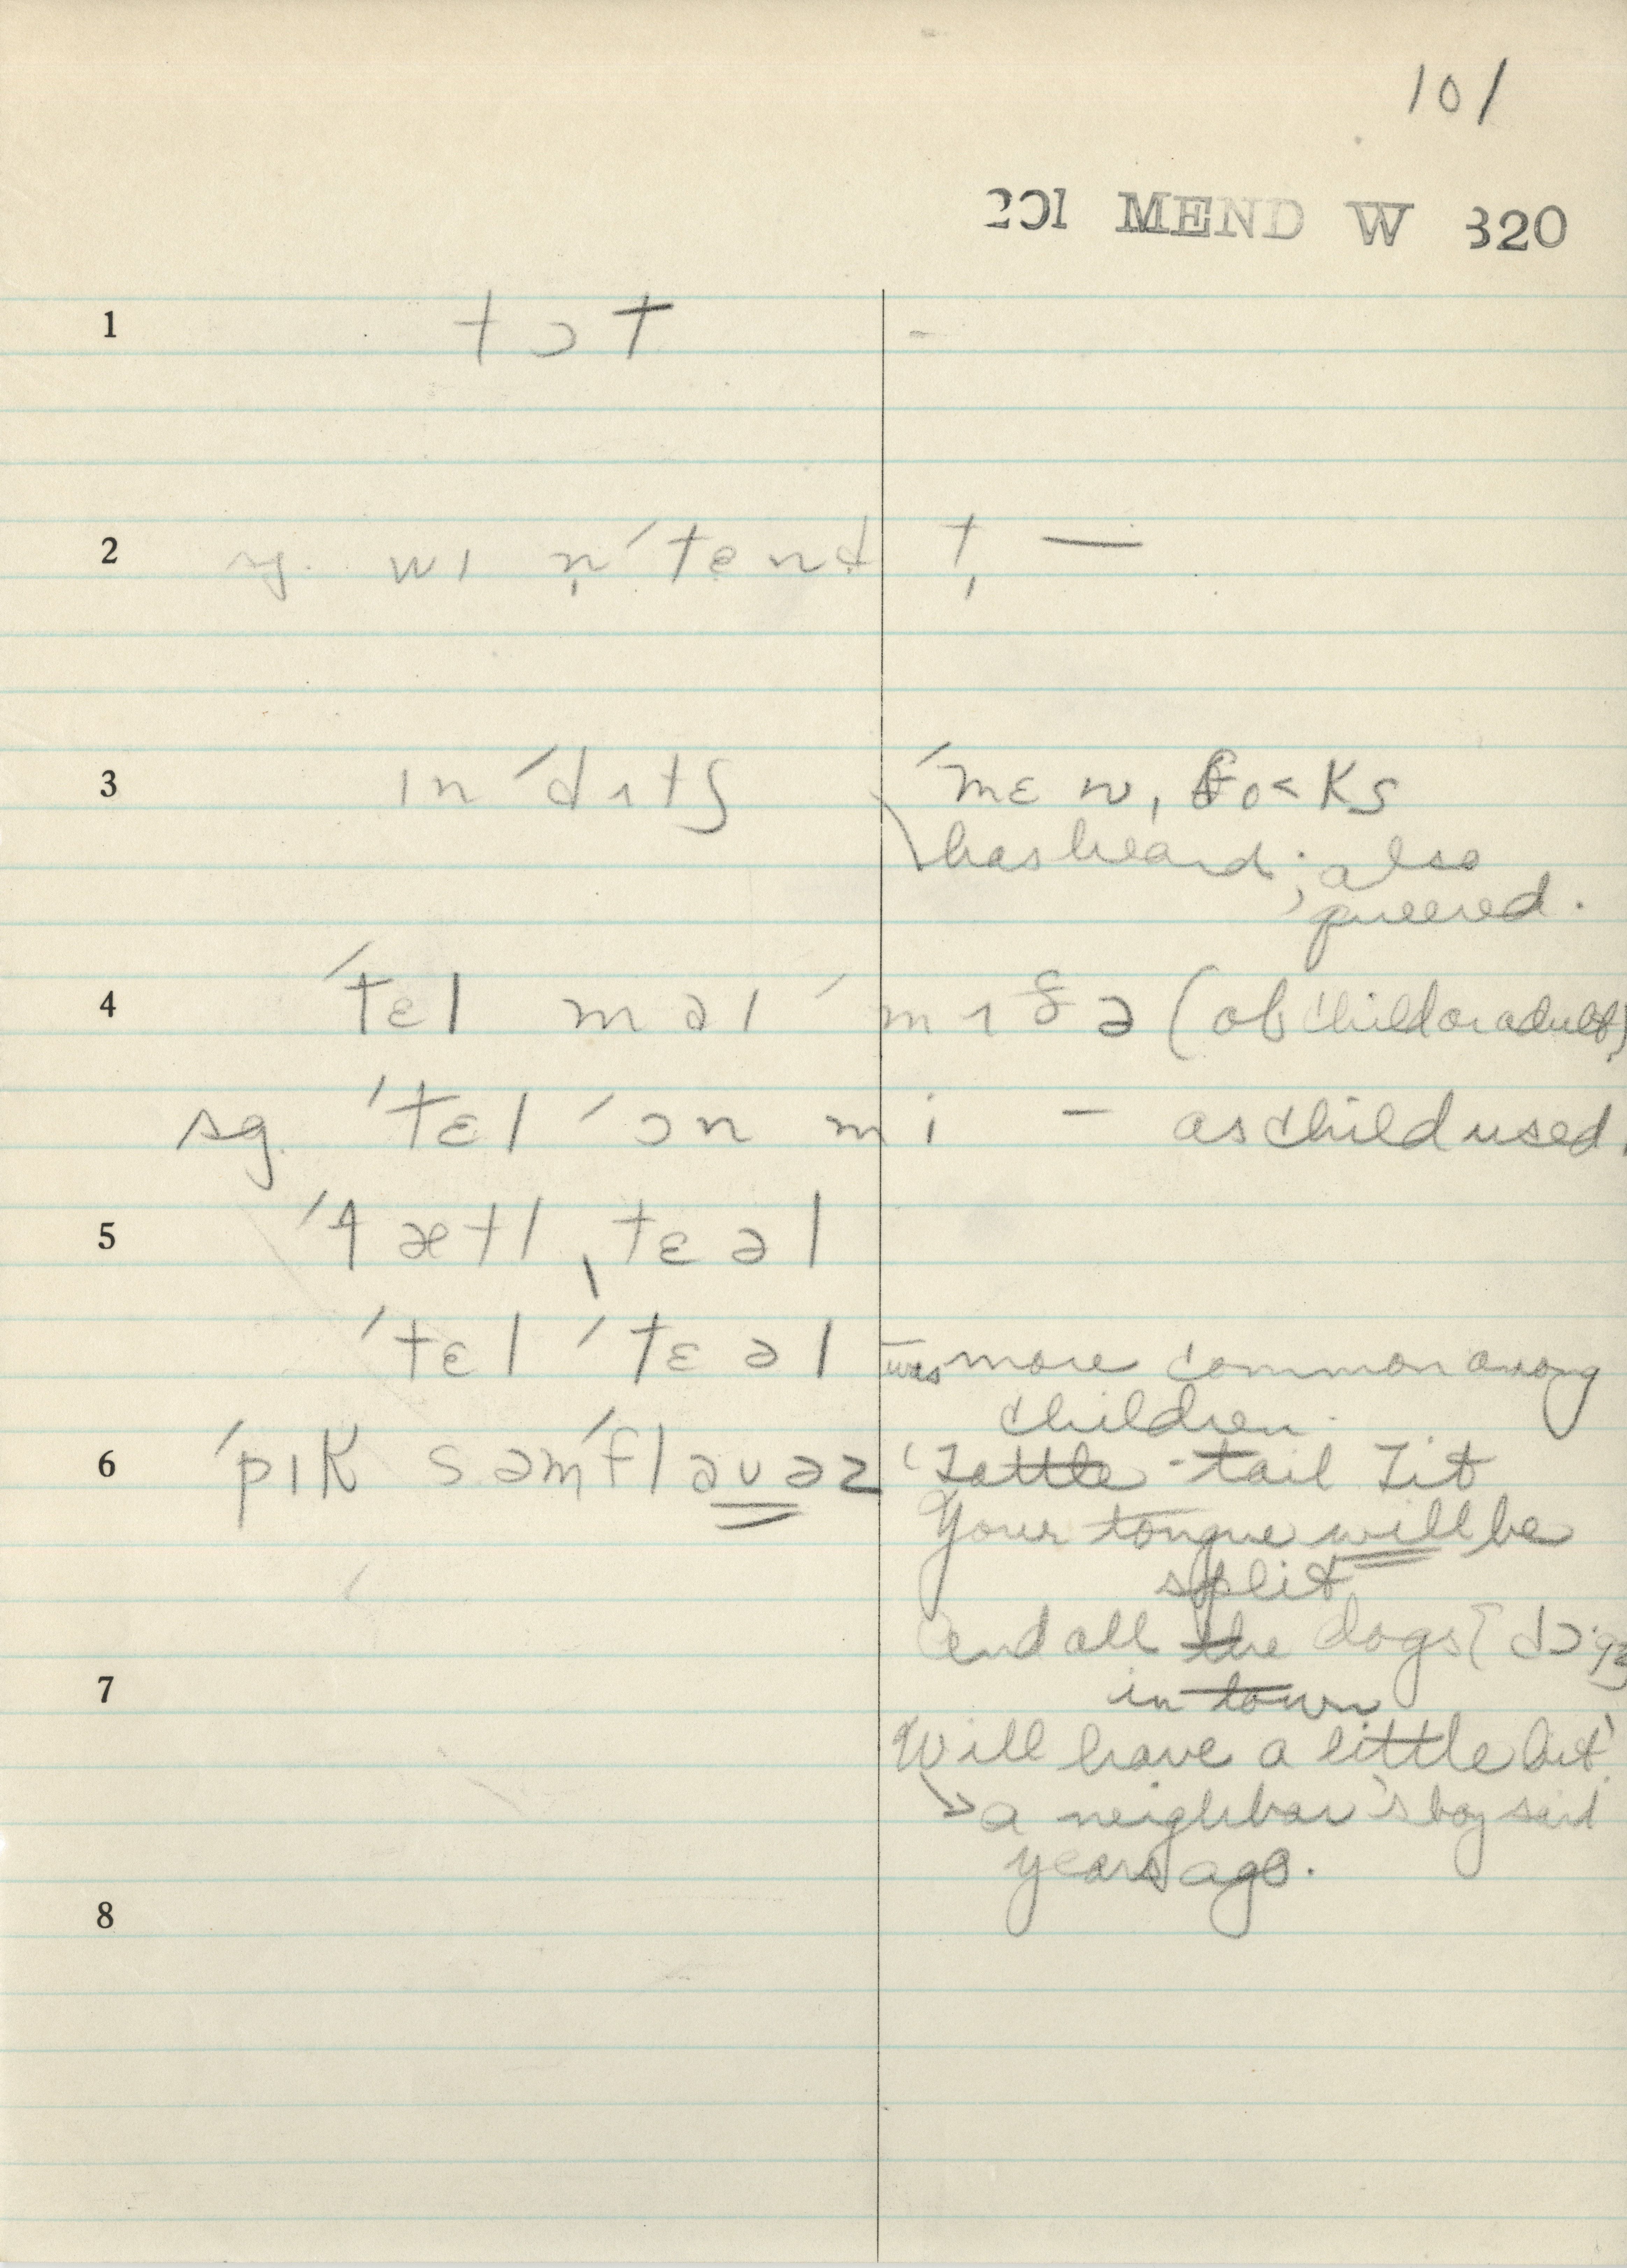 101
201 MEND W 820
1 tɔt -
2 sg. wɪ n̩ ˊtend t̩ —
3 ɪn ˊdɪtʃ ˊmɛ nɪ foˑ< ks
has heard; also
queered.
4 ˊtɛl məɪ ˊmɪðə (of child or adult)
sg. ˊtɛl ˊɔn mi – as child used.
5 ˊtætl ˌtɛəl
ˊtɛl ˊtɛəl – was more common among
children.
6 ˊpɪk səm ˊflaʊəz 'Tattle-tail Tit
Your tongue will be
split
And all the dogs [dɔˑgz
in town
7
Will have a little bit'
→ a neighbor's boy said
years ago.
8